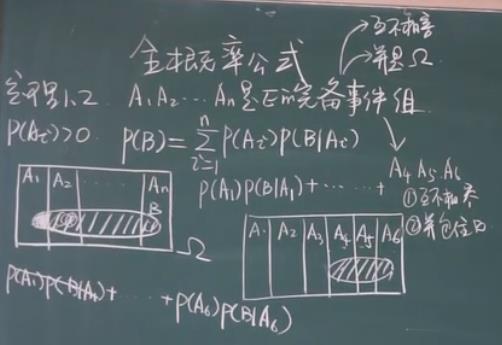 互不相容
并是Ω
全概率公式
定理1.2. A₁A₂⋯Aₙ是E的完备事件组
P(Aᵢ)>0. P(B)=∑ᵢ₌₁ⁿP(Aᵢ)P(B|Aᵢ)
P(A₁)P(B|A₁)+⋯⋯+
A₄A₅.A₆
①互不相容
②并包住B
A₁ A₂ ⋯ Aₙ
B
Ω
A₁ A₂ A₃ A₄ A₅ A₆
P(A₁)P(B|A₁)+⋯+P(A₆)P(B|A₆)